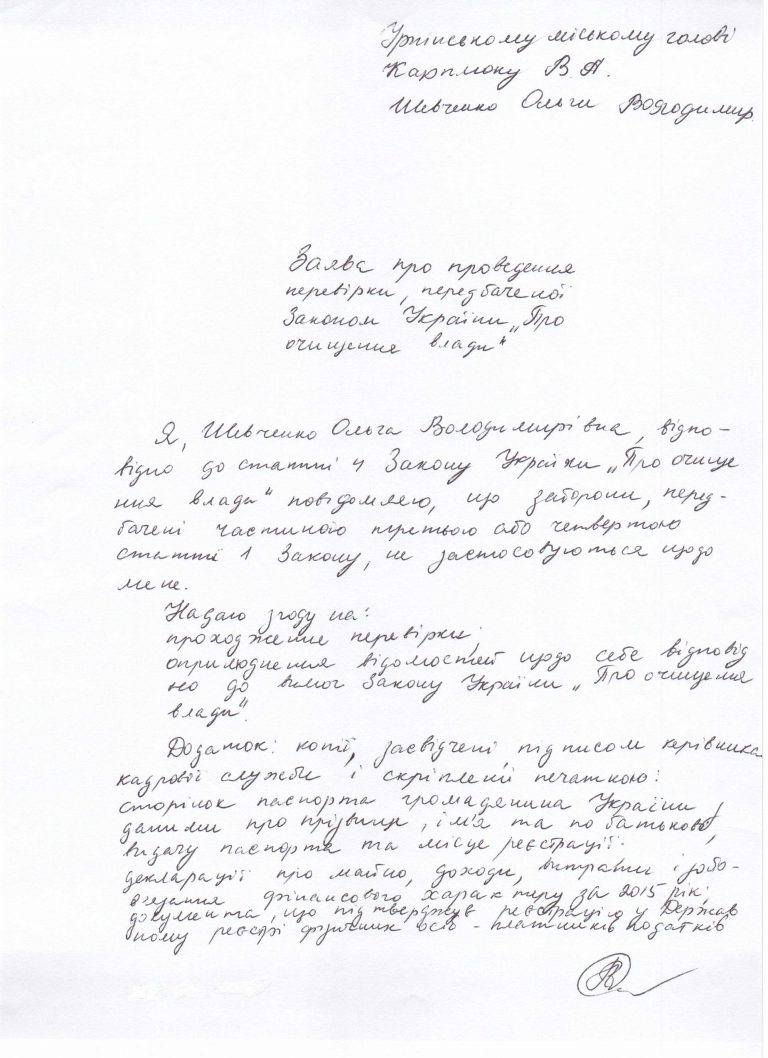 Ірпінському міському голові
Карплюку В.А.
Шевченко Ольги Володимир.
Заява про проведення
перевірки, передбаченої
Законом України „Про
очищення влади“
Я, Шевченко Ольга Володимирівна, відпо-
відно до статті 4 Закону України „Про очище
ння влади“ повідомляю, що заборони, перед-
бачені частиною третьою або четвертою
статті 1 Закону, не застосовуються щодо
мене.
Надаю згоду на:
проходження перевірки;
оприлюднення відомостей щодо себе відповід
но до вимог Закону України „Про очищення
влади“.
Додаток: копії, засвідчені підписом керівника
кадрової служби і скріплені печаткою:
сторінок паспорта громадянина України
даними про прізвище, ім'я та по батькові,
видачу паспорта та місце реєстрації.
декларації про майно, доходи, витрати і зобо-
в'язання фінансового характеру за 2015 рік;
документа, що підтверджує реєстрацію у Держав
ному реєстрі фізичних осіб - платників податків